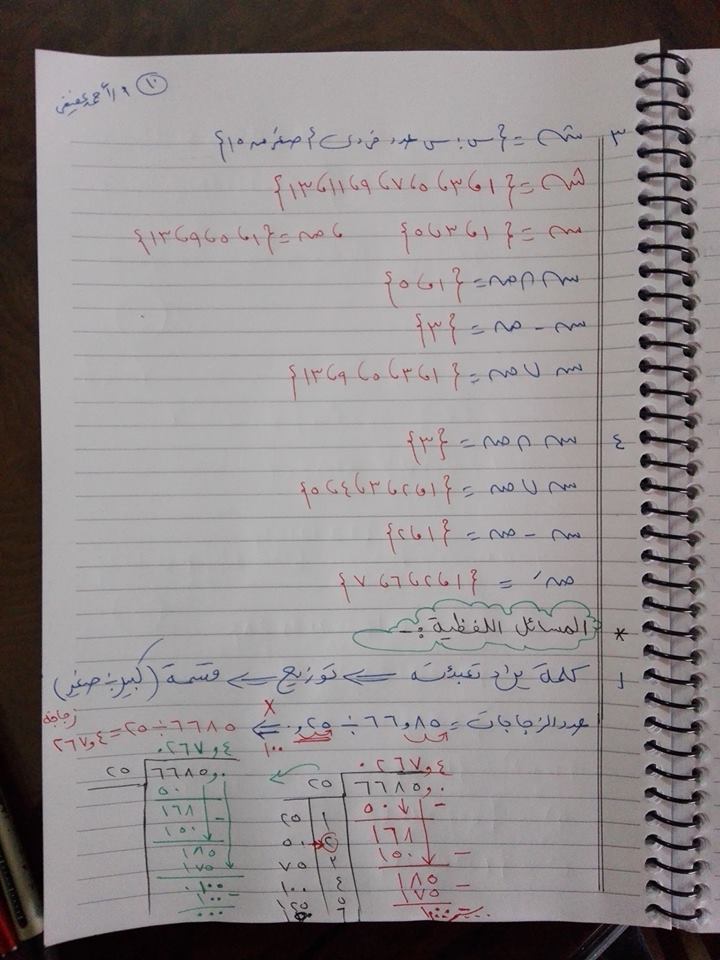 ١٠ أ/أحمد عفيفى
٣ ش = {س : س عدد فردى أصغر من ١٥}
ش = {١ ، ٣ ، ٥ ، ٧ ، ٩ ، ١١ ، ١٣}
س = {١ ، ٣ ، ٥} ، ص = {١ ، ٥ ، ٩ ، ١٣}
س ∩ ص = {١ ، ٥}
س - ص = {٣}
س ∪ ص = {١ ، ٣ ، ٥ ، ٩ ، ١٣}
٤ س ∩ ص = {٣}
س ∪ ص = {١ ، ٢ ، ٣ ، ٤ ، ٥}
س - ص = {١ ، ٢}
صَ = {١ ، ٢ ، ٦ ، ٧}
* المسائل اللفظية :-
١ كلمة يراد تعبئته ⇐ توزيع ⇐ قسمة (كبير ÷ صغير)
عدد الزجاجات = ٦٦,٨٥ ÷ ٠,٢٥ ⇐ ٦٦٨٥ ÷ ٢٥ = ٢٦٧,٤ زجاجة
× ١٠٠
٠٢٦٧,٤
٢٥ ٦٦٨٥,٠
٥٠ -
١٦٨
١٥٠ -
١٨٥
١٧٥ -
١٠٠
١ ٢٥
٢ ٥٠
٣ ٧٥
٤ ١٠٠
٥ ١٢٥
٦
٠٢٦٧,٤
٢٥ ٦٦٨٥,٠
٥٠
١٦٨
١٥٠ -
١٨٥
١٧٥
٠١٠٠
١٠٠ -
٠٠٠